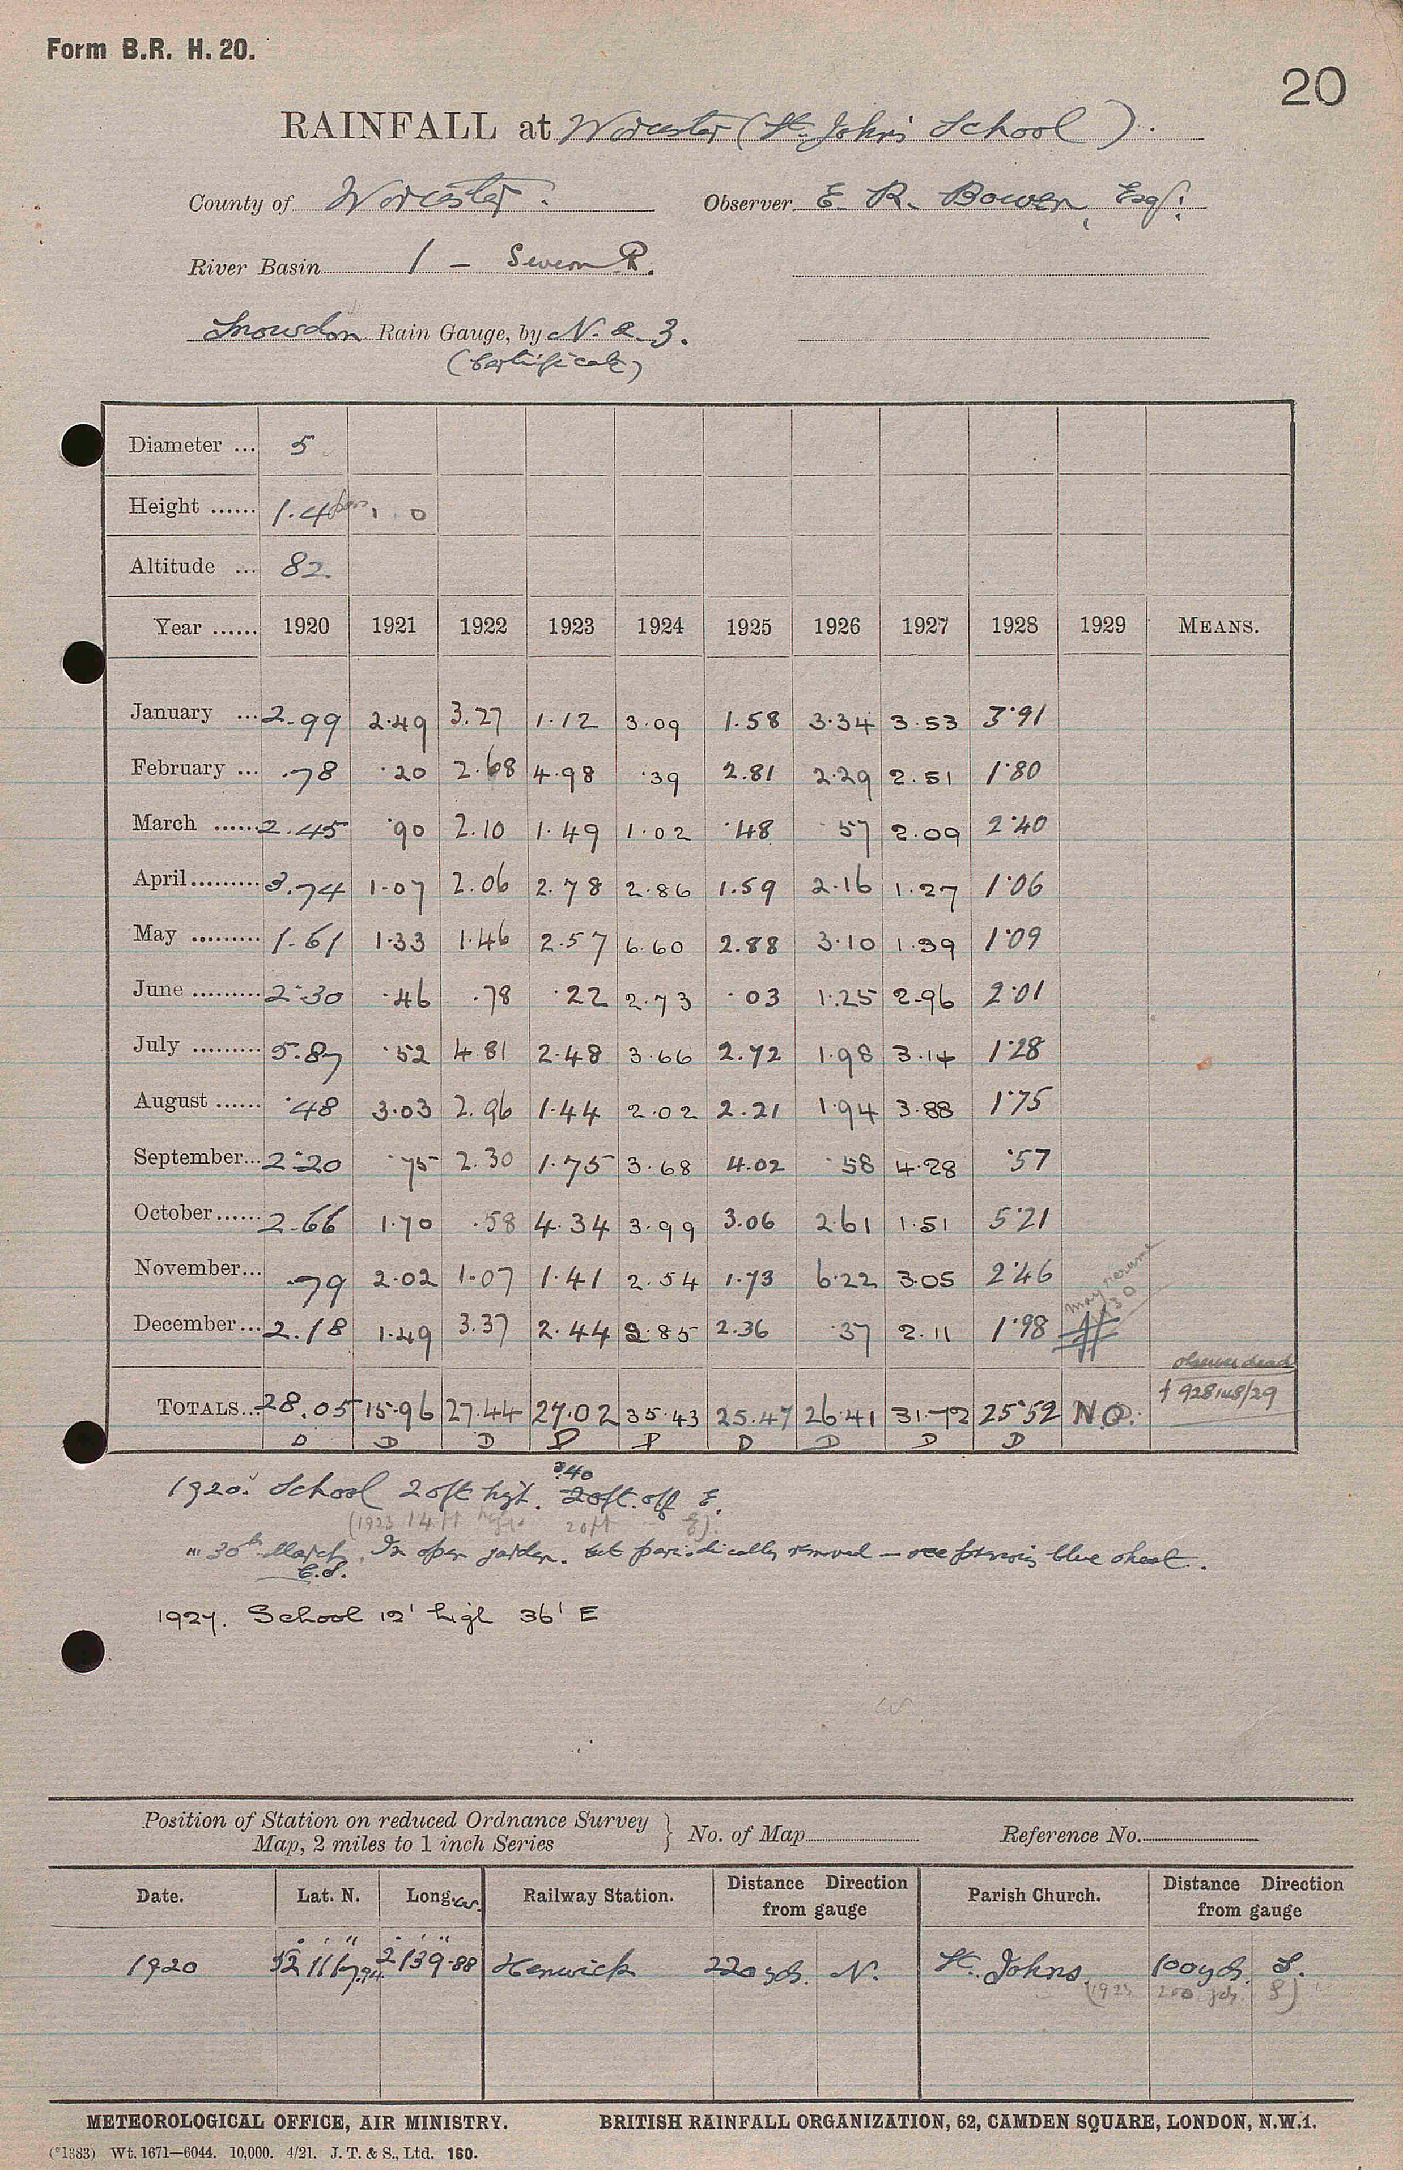 Form B.R. H. 20.
20
RAINFALL at Worcester (St. John's School).
County of Worcester. Observer E. R. Bowen, Esq:
River Basin 1 - Severn R.
Snowdon Rain Gauge, by N. & Z.
(Certificate)
Diameter ... 5
Height ...... 1.4 1.0
Altitude ... 82
Year ...... 1920 1921 1922 1923 1924 1925 1926 1927 1928 1929 MEANS.
January ... 2.99 2.49 3.27 1.12 3.09 1.58 3.34 3.53 3.91
February ... .78 .20 2.68 4.98 .39 2.81 2.29 2.51 1.80
March ...... 2.45 .90 2.10 1.49 1.02 .48 .57 2.09 2.40
April......... 3.74 1.07 2.06 2.78 2.86 1.59 2.16 1.27 1.06
May ......... 1.61 1.33 1.46 2.57 6.60 2.88 3.10 1.39 1.09
June ......... 2.30 .46 .78 .22 2.73 .03 1.25 2.96 2.01
July ......... 5.87 .52 4.81 2.48 3.66 2.72 1.98 3.14 1.28
August ...... .48 3.03 2.96 1.44 2.02 2.21 1.94 3.88 1.75
September... 2.20 .75 2.30 1.75 3.68 4.02 .58 4.28 .57
October...... 2.66 1.70 .58 4.34 3.99 3.06 2.61 1.51 5.21
November... .79 2.02 1.07 1.41 2.54 1.73 6.22 3.05 2.46
may resume
December... 2.18 1.49 3.37 2.44 2.85 2.36 .37 2.11 1.98
observer dead
TOTALS... 28.05 15.96 27.44 27.02 35.43 25.47 26.41 31.72 25.52 N.O. † 928148/29
D D D D P D D D D
?40
1920. School 20ft high. 20ft. off E.
(1923 14ft high 20ft E).
" 30th March. In open garden. but periodically removed - see previous blue sheet.
1927. School 12' high 36' E
Position of Station on reduced Ordnance Survey
Map, 2 miles to 1 inch Series } No. of Map Reference No.
Date. Lat. N. Long W. Railway Station. Distance Direction from gauge Parish Church. Distance Direction from gauge
° ' " ° ' "
1920 52 11 17.94 2 13 9.88 Henwick 220 yds. N. St. Johns 100 yds. S.
(1923 200 yds. S)
METEOROLOGICAL OFFICE, AIR MINISTRY. BRITISH RAINFALL ORGANIZATION, 62, CAMDEN SQUARE, LONDON, N.W.1.
(*1383) Wt. 1671—6044. 10,000. 4/21. J. T. & S., Ltd. 160.